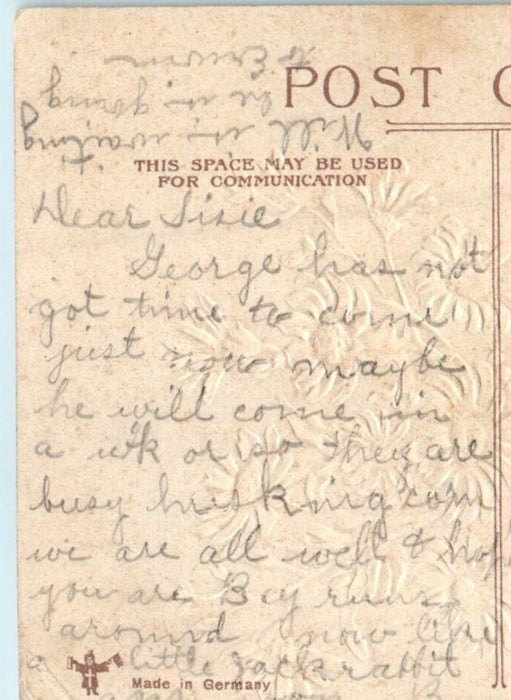 POST C
THIS SPACE MAY BE USED
FOR COMMUNICATION
Dear Sisie
George has not
got time to come
just now maybe
he will come in
a wk or so they are
busy husking corn
we are all well & hope
you are Boy runs
around now like
a little jack rabbit
Made in Germany
Will is waiting
he is going
to